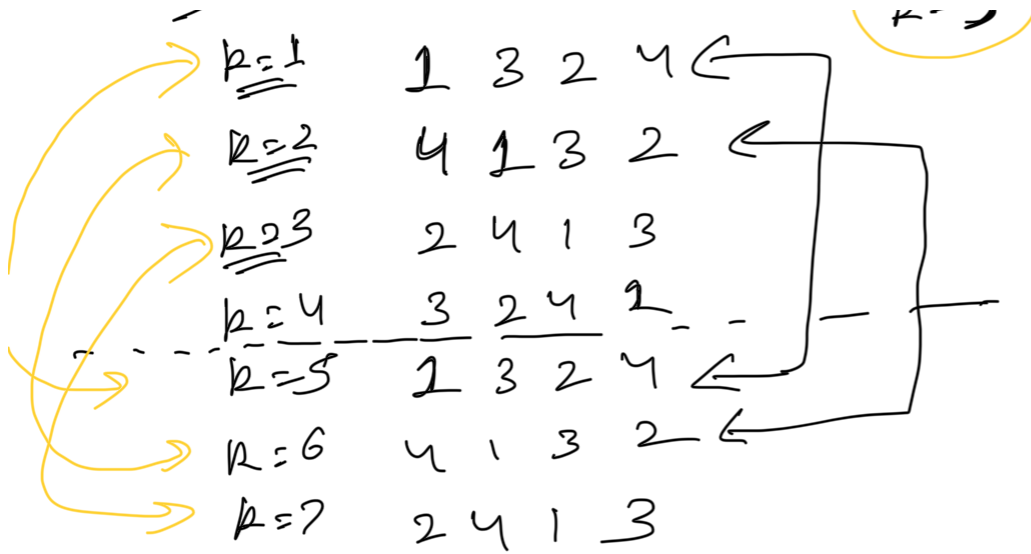 k=1 1 3 2 4
k=2 4 1 3 2
k=3 2 4 1 3
k=4 3 2 4 1
k=5 1 3 2 4
k=6 4 1 3 2
k=7 2 4 1 3